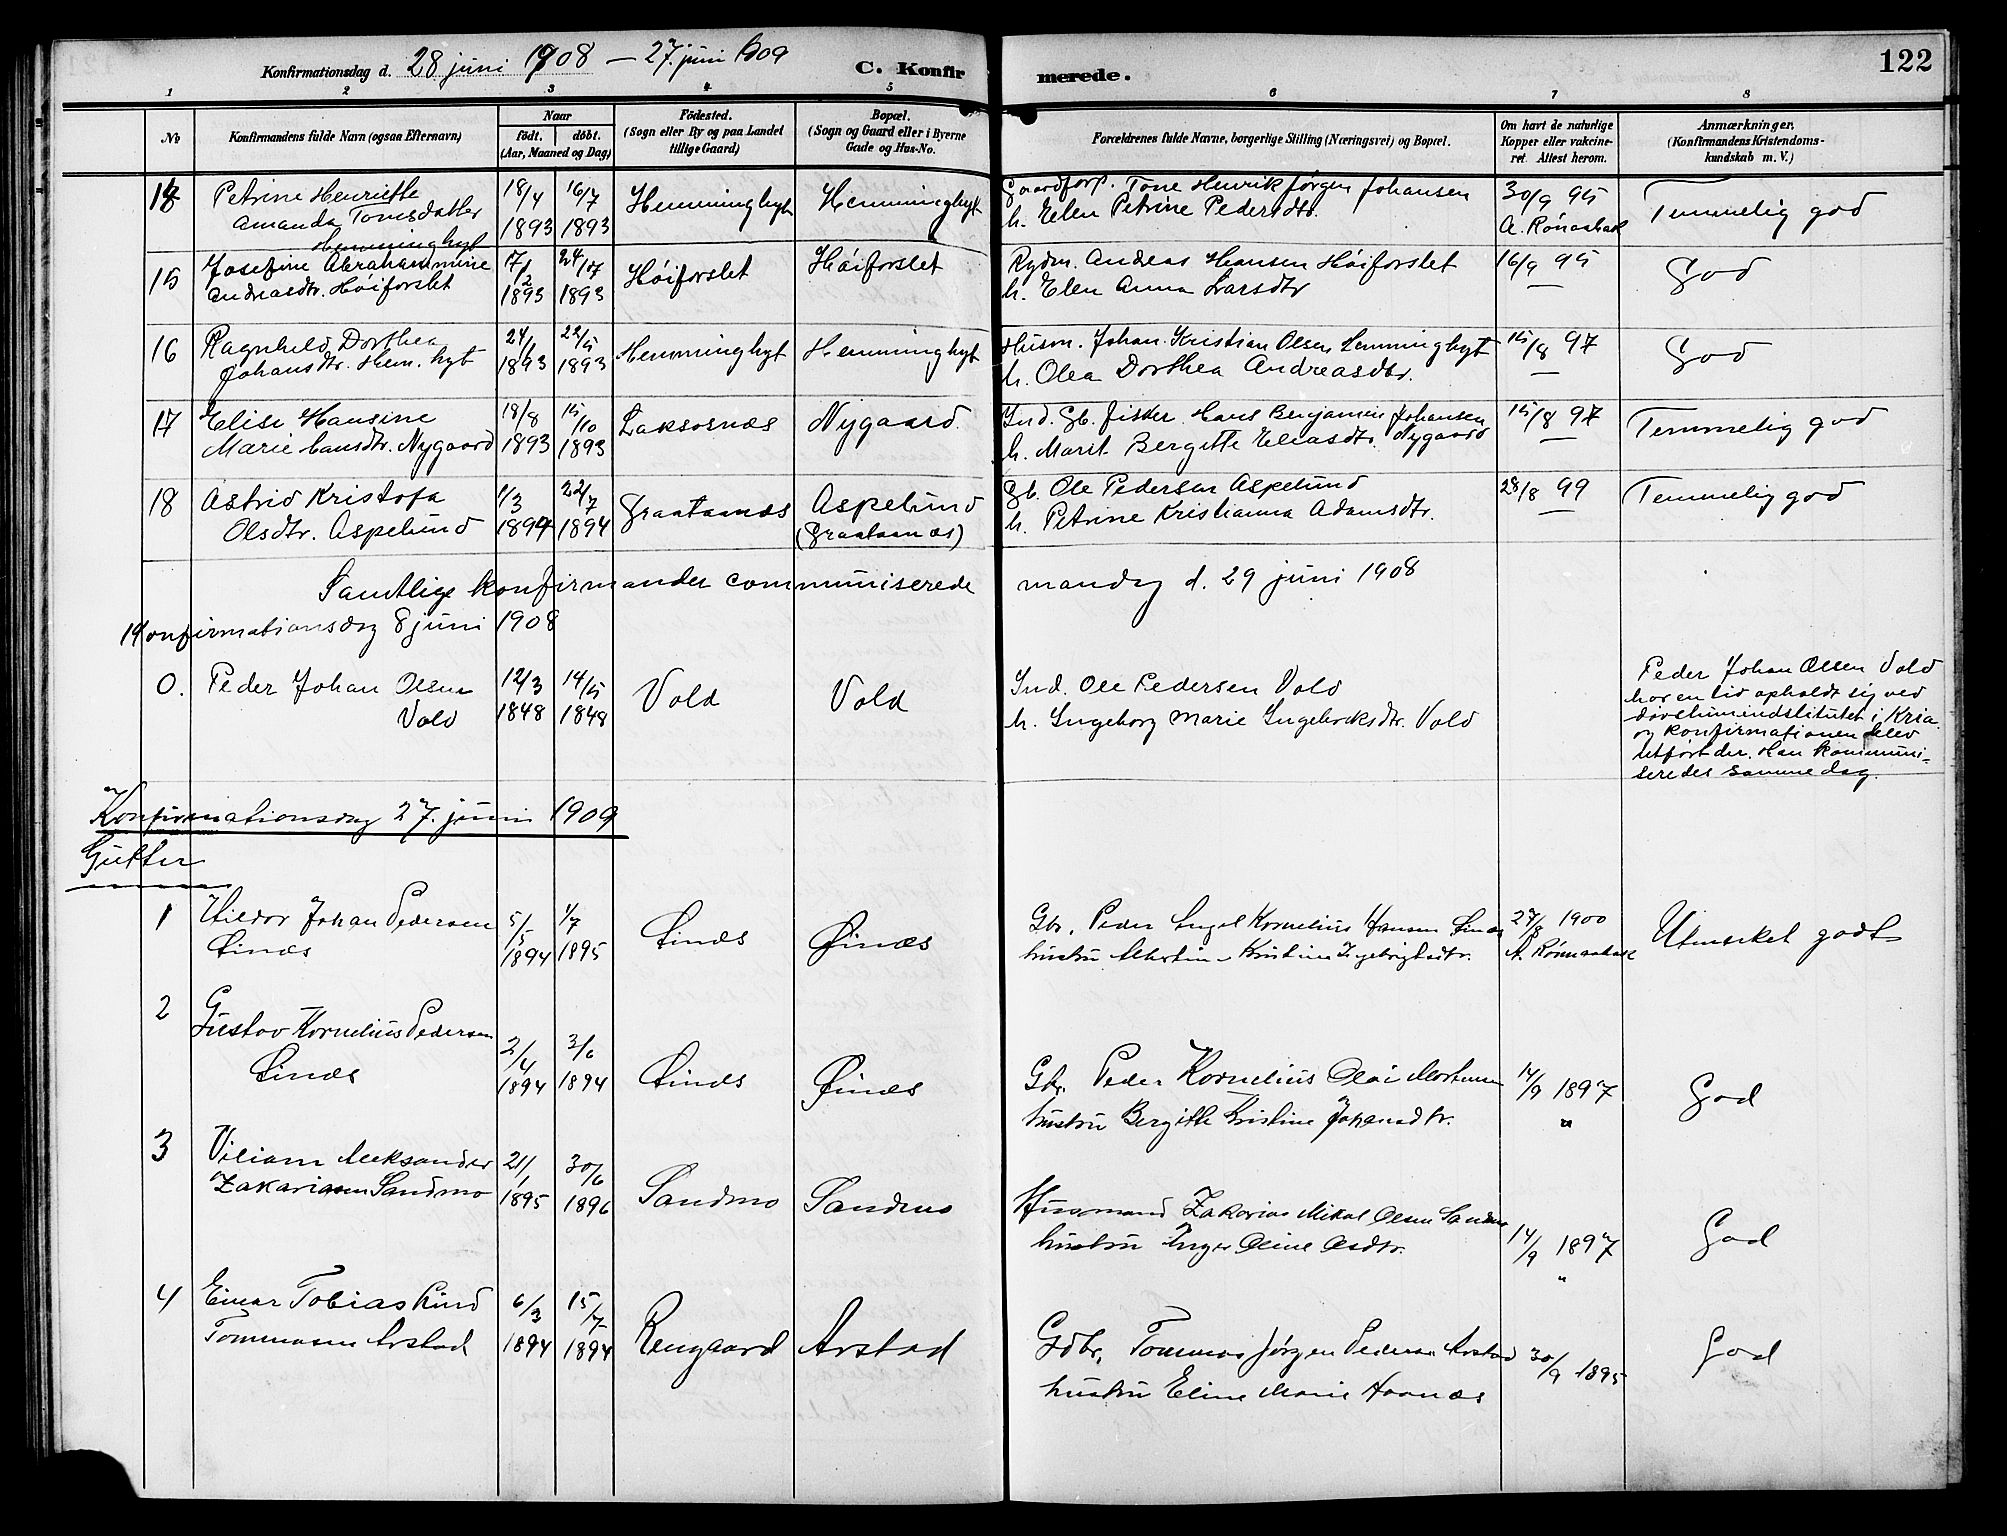 Konfirmationsdag d. 28 juni 1908 – 27. juni 1909
C. Konfirmerede.
122
1 2 3 4 5 6 7 8
No
Konfirmandens fulde Navn (ogsaa Efternavn)
Naar
födt. döbt.
(Aar, Maaned og Dag)
Födested.
(Sogn eller By og paa Landet
tillige Gaard)
Bopæl.
(Sogn og Gaard eller i Byerne
Gade og Hus-No.
Forældrenes fulde Navne, borgerlige Stilling (Næringsvei) og Bopæl.
Om havt de naturlige
Kopper eller vakcine-
ret. Attest herom.
Anmærkninger.
(Konfirmandens Kristendoms-
kundskab m. V.)
Petrine Henriette 18/4 16/7 Hemminghyt Hemminghyt Gaardforp. Tone Henrik Jørgen Johansen 30/9 95 Temmelig god
Amanda Tomsdatter 1893 1893 h. Elen Petrine Pedersdtr. A. Rønasbak
Hemminghyt
15 Josefine Abrahammine 17/2 24/7 Høiforslet Høiforslet Rydm. Andreas Hansen Høiforslet 16/9 95 God
Andreasdtr. Høiforslet 1893 1893 h. Elen Anna Larsdtr
16 Ragnhild Dorthea 24/1 22/5 Hemminghyt Hemminghyt Husm. Johan Kristian Olsen Hemminghyt 15/8 97 God
Johansdtr. Hem. hyt 1893 1893 h. Olea Dorthea Andreasdtr.
17 Elise Hansine 18/8 15/10 Laksosnæs Nygaard Ind. Gb. fisker Hans Benjamin Johansen 15/8 97 Temmelig god
Marie Hansdtr. Nygaard 1893 1893 h. Marit Bergitte Eliasdtr. Nygaard
18 Astrid Kristofa 1/3 22/7 Graatanæs Aspelund Gb. Ole Pedersen Aspelund 28/8 99 Temmelig god
Olsdtr. Aspelund 1894 1894 (Graatanæs) h. Petrine Kristianna Adamsdtr.
Samtlige konfirmander communiserede mandag d. 29 juni 1908
Konfirmationsdag 8 juni 1908
0. Peder Johan Olsen 12/3 14/5 Vold Vold Ind. Ole Pedersen Vold
Vold 1848 1848 h. Ingeborg Marie Vold
Peder Johan Olsen Vold
har en tid opholdt sig ved
døvstumindstitutet i Kria
og konfirmationen blev
utført der. Han kommuni-
seredes samme dag.
Konfirmationsdag 27. juni 1909
Gutter
1 Hildor Johan Pedersen 5/5 1/7 Sinæs Øinæs Gbr. Peder Kornelius Hansen 27/8 1900 Utmerket godt
1894 1895 hustru Martine Kristine Ingebrigtsdtr. A. Rønnasbak
2 Gustav Kornelius Pedersen 2/4 3/6 Øinæs Gbr. Peder Kornelius Olai Mortensen 14/9 1897 God
1894 1894 hustru Bergitte Kristine Johansdtr. "
3 Viliam Aleksander 21/1 30/6 Sandmo Sandmo Husmand Zakarias Mikal Olsen 14/9 1897 God
Zakariasen Sandmo 1895 1896 hustru Inger Oline Olsdtr. "
4 Einar Tobias 6/3 15/7 Rengaard Arstad Gdbr. Tommas Jørgen Pedersen Arstad 30/9 1895 God
Tommasen Arstad 1894 1894 hustru Eline Marie Hovnæs